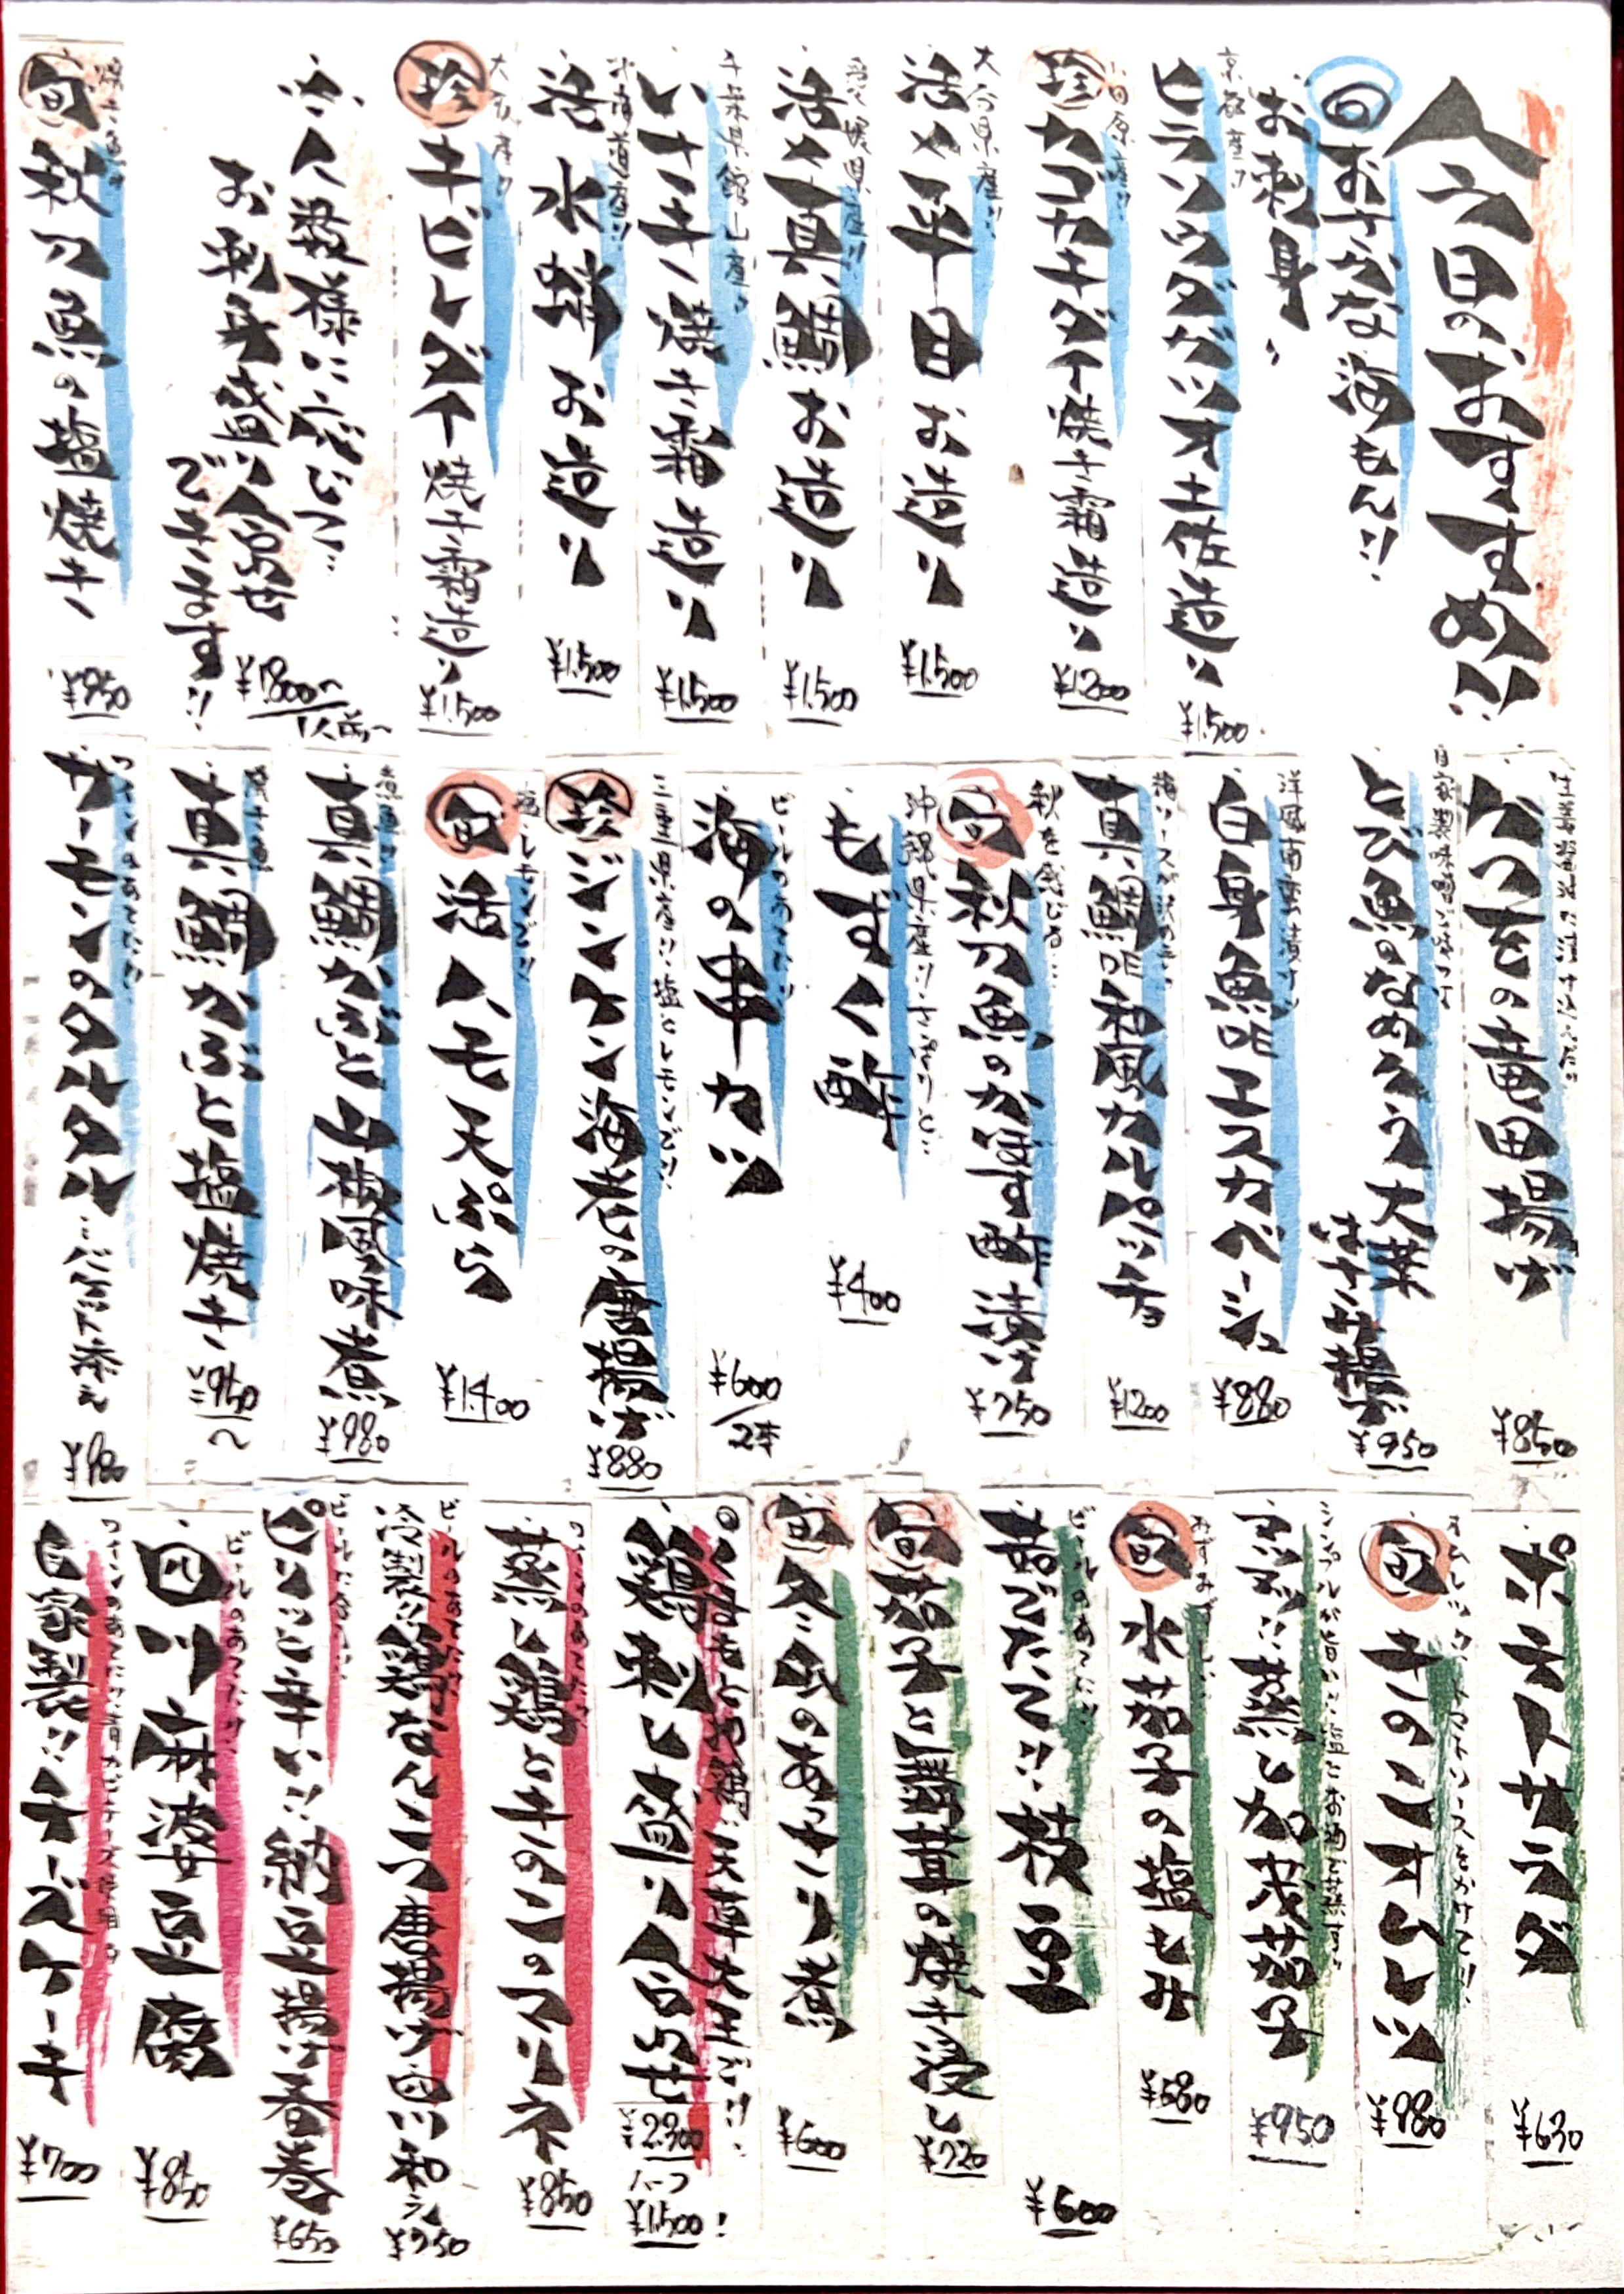 今日のおすすめ!!
旬 おさかな 海もん!!
お刺身、
京都産!!
ヒラソウダガツオ土佐造り
¥1,500
小田原産!!
珍 カゴカキダイ焼き霜造り
¥1200
大分県産!!
活〆平目お造り
¥1,500
愛媛県産!!
活〆真鯛お造り
¥1,500
千葉県館山産!!
いさき焼き霜造り
¥1,500
北海道産!!
活水蛸お造り
¥1,500
大分産!!
珍 キビレダイ焼き霜造り
¥1,500
人数様に応じて…
お刺身盛り合わせ
できます!!
¥1,800〜
1人前〜
焼き魚!!
旬 秋刀魚の塩焼き
¥950
かつをの竜田揚げ
¥850
自家製味噌で味つけ
とび魚のなめろう大葉
はさみ揚げ
¥950
洋風南蛮漬け
白身魚のエスカベーシュ
¥880
真鯛の和風カルパッチョ
¥1200
秋を感じる…
旬 秋刀魚のかぼす酢漬け
¥750
沖縄県産!!さっぱりと…
もずく酢
¥400
ビールのあてに!!
海の串カツ
¥600/2本
三重県産!!塩とレモンで!!
珍 ジンケン海老の唐揚げ
¥880
塩・レモンで!!
旬 活ハモ天ぷら
¥1,400
煮魚!!
真鯛かぶと山椒風味煮
¥980
焼き魚
真鯛かぶと塩焼き
¥950〜
ワインのあてに!!
サーモンのタルタル…バゲット添え
¥980
ポテトサラダ
¥630
旬 きのこオムレツ
¥980
シンプルが旨い!!塩とお酒で蒸す!!
蒸し加茂茄子
¥950
旬 水茄子の塩もみ
¥680
ビールのあてに!!
茹でたて!!枝豆
¥600
旬 茄子と舞茸の焼き浸し
¥720
旬 冬瓜のあっさり煮
¥600
天草大王!!
鶏刺し盛り合わせ
¥2,300
ハーフ
¥1,500!
ワインのあてに!!
蒸し鶏ときのこのマリネ
¥850
ビールのあてに!!
冷製!!鶏なんこつ唐揚げ四川和え
¥750
ビールに合う!!
ピリッと辛い!!納豆揚げ春巻
¥650
ビールのあてに!!
四川麻婆豆腐
¥850
自家製!!チーズケーキ
¥700